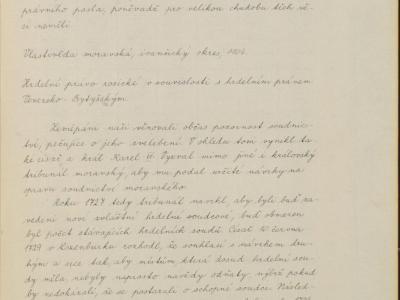 právního posla, poněvadž pro velikou chudobu těch vě-
cí navrčti.
Vlastivěda moravská, ivančický okres, 1904.
Hrdelní právo rosické v souvislosti s hrdelním právem
Veversko-Bytyšským.
Zeměpáni naši věnovali občas pozornost soudnic-
tví, pečujíce o jeho zvelebení. V ohledu tom vynikl ta-
ké císař a král Karel VI. Vyzval mimo jiné i královský
tribunál moravský, aby mu podal určité návrhy na
opravu soudnictví moravského.
Roku 1727 tedy tribunál navrhl, aby byli buď za-
vedeni noví zvláštní hrdelní soudcové, buď obnoven
byl počet stávajících hrdelních soudů. Císař v červnu
1729 v Laxenburku rozhodl, že souhlasí s návrhem dru-
hým a sice tak, aby místům, která dosud hrdelní sou-
dy měla, nebyly naprosto navždy odňaty, nýbrž pokud
by nedokázali, že se postarali o schopné soudce. Násled-